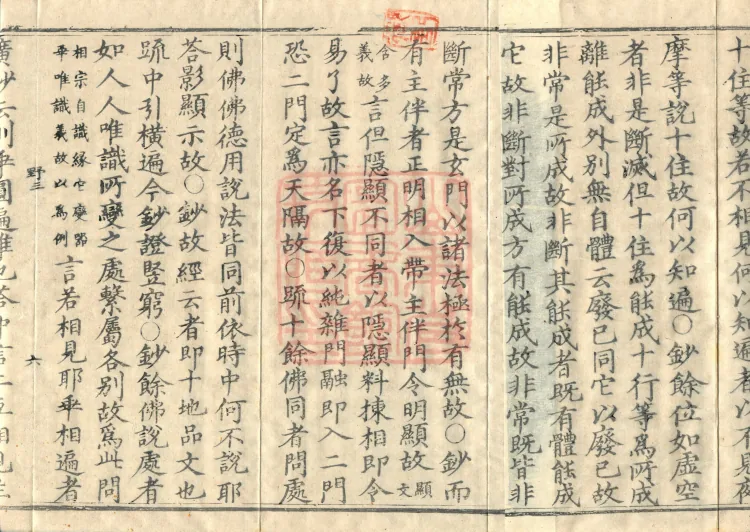 十住等故若不相見何以知遍者以不見夜
摩等說十住故何以知遍〇鈔餘位如虛空
者非是斷滅但十住為能成十行等為所成
離能成外別無自體云廢已同它以廢已故
非常是所成故非斷其能成者既有體能成
它故非斷對所成方有能成故非常既皆非
斷常方是玄門以諸法極於有無故〇鈔而
有主伴者正明相入帶主伴門令明顯故顯文
含多義故言但隱顯不同者以隱顯料揀相即令
易了故言亦名下復以純雜門融即入二門
恐二門定為天隔故〇䟽十餘佛同者問處
則佛佛德用說法皆同前依時中何不說耶
荅影顯示故〇鈔故經云者即十地品文也
䟽中引橫遍今鈔證豎窮〇鈔餘佛說處者
如人人唯識所變之處繫屬各別故為此問
相宗自識緣它變即乖唯識義故以為例言若相見耶乖相遍者
野三 六
廣鈔云則爭圓遍難也荅中言二互相見主